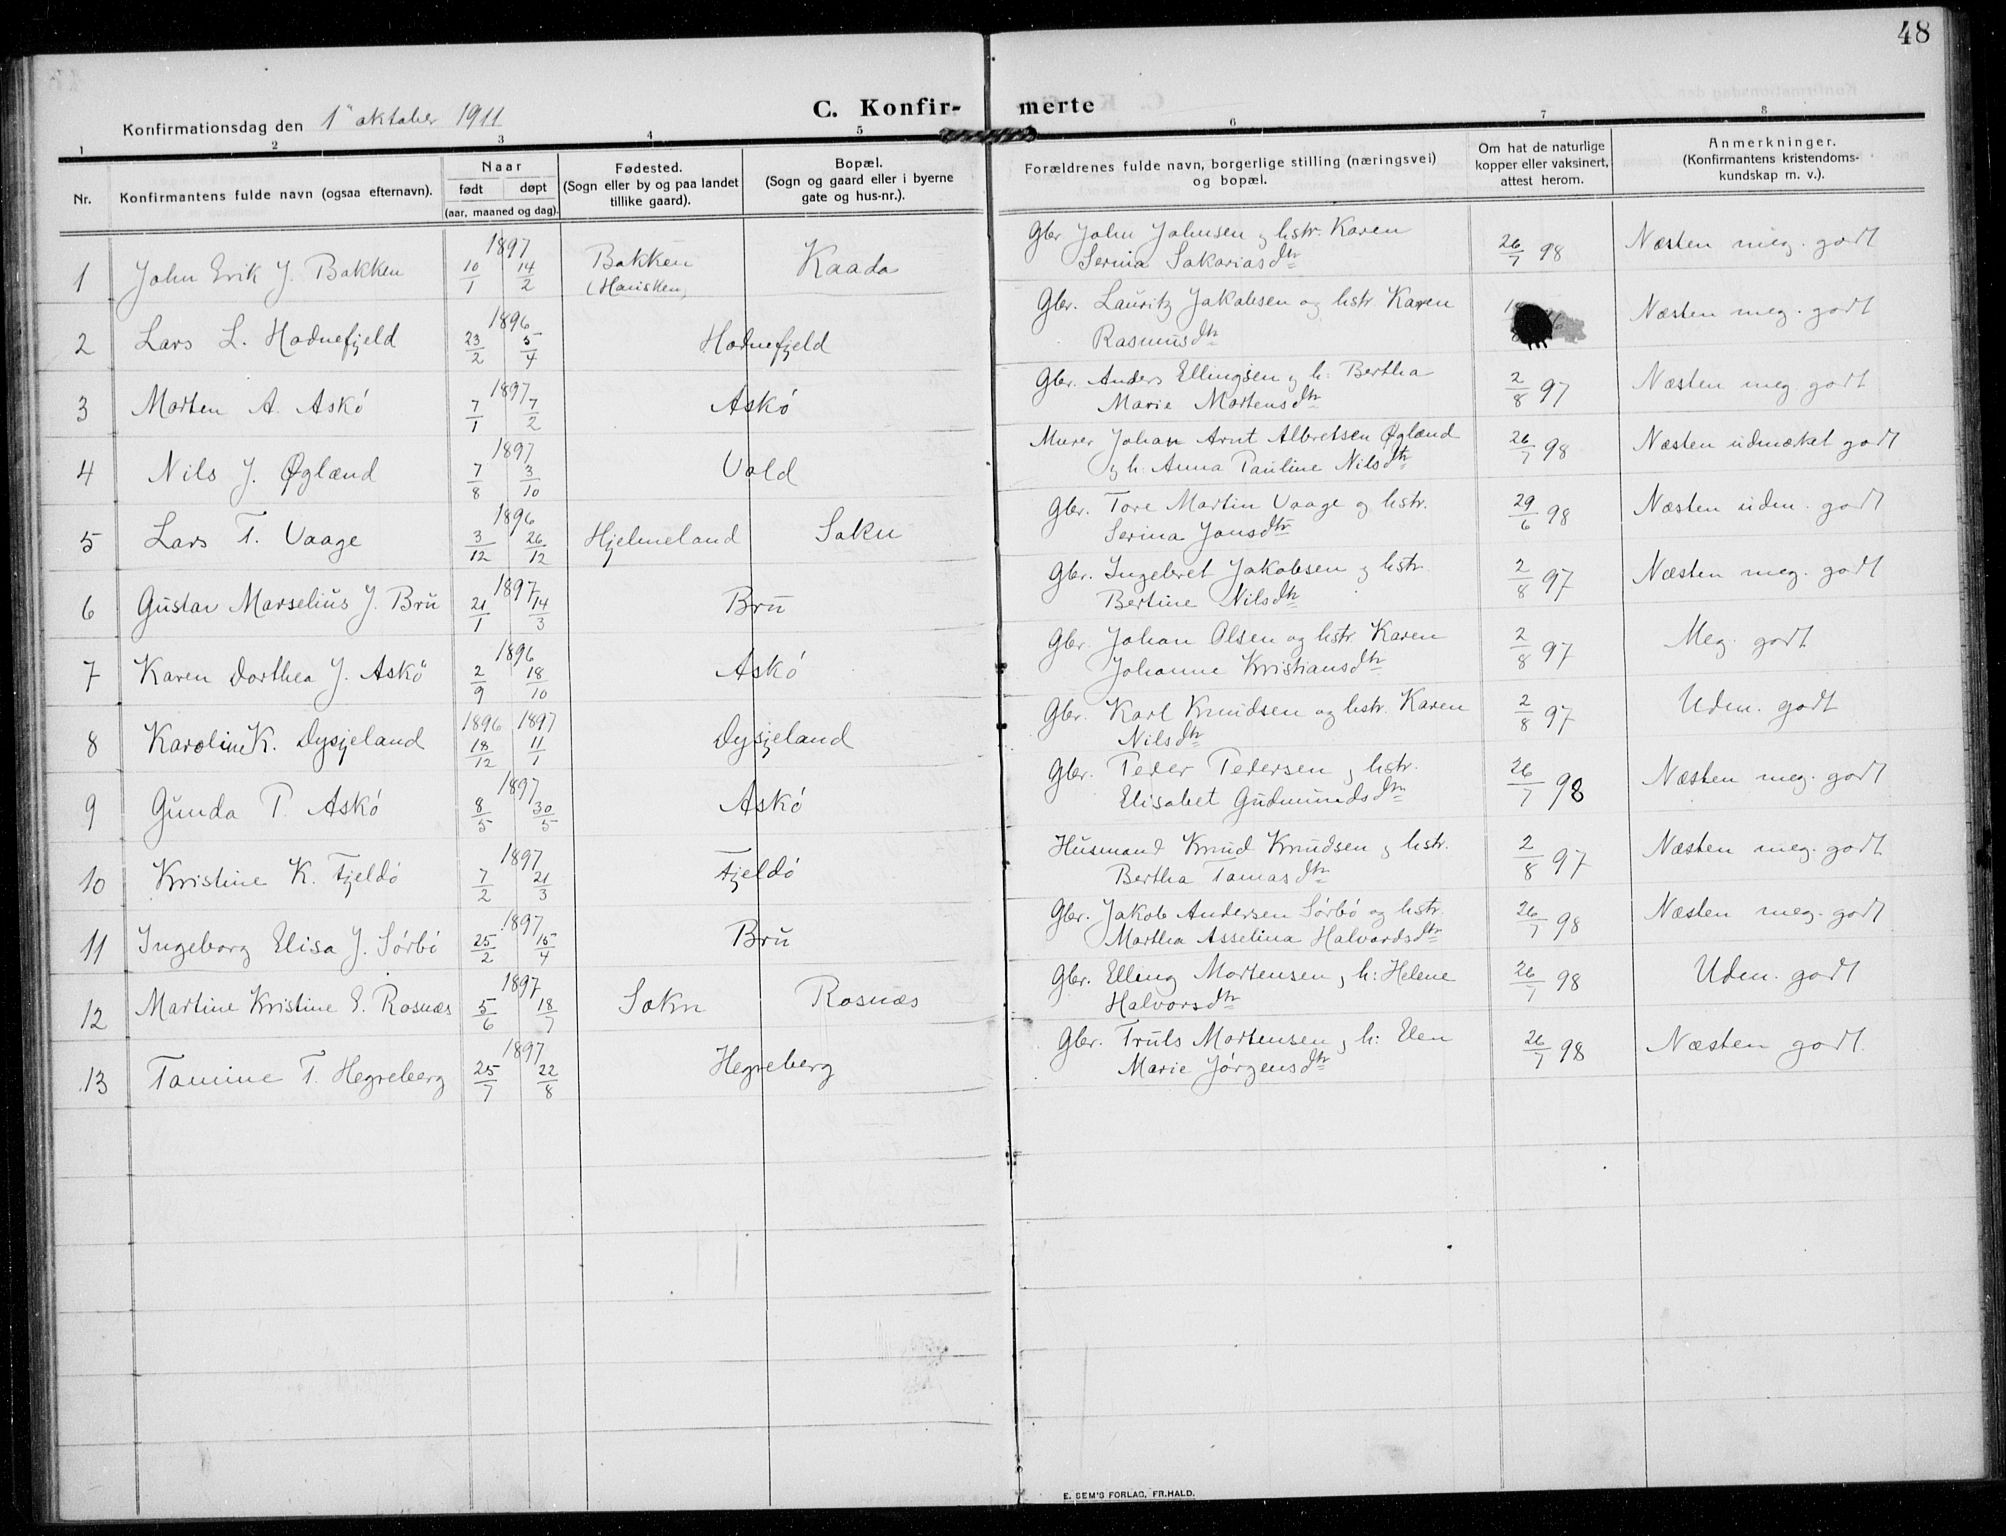 48
C. Konfir- merte
Konfirmationsdag den 1ste oktober 1911
1 2 3 4 5 6 7 8
Nr.
Konfirmantens fulde navn (ogsaa efternavn).
Naar
født døpt
(aar, maaned og dag).
Fødested.
(Sogn eller by og paa landet
tillike gaard).
Bopæl.
(Sogn og gaard eller i byerne
gate og hus-nr.).
Forældrenes fulde navn, borgerlige stilling (næringsvei)
og bopæl.
Om hat de naturlige
kopper eller vaksinert,
attest herom.
Anmerkninger.
(Konfirmantens kristendoms-
kundskap m. v.).
1 John Erik J. Bakken 1897 10/1 14/2 Bakken (Hausken) Kaada Gbr. John Johnsen og hstr. Karen
Serina Sakariasdtr 26/7 98 Næsten meg. godt
2 Lars L. Hodnefjeld 1896 23/2 5/4 Hodnefjeld Gbr. Lauritz Jakobsen og hstr. Karen
Rasmusdtr Næsten meg. godt
3 Morten A. Askö 1897 7/1 7/2 Askö Gbr. Anders Ellingsen og h: Bertha
Marie Mortensdtr 2/8 97 Næsten meg. godt
4 Nils J. Øglænd 1897 7/8 3/10 Vold Murer Johan Arnt Albretsen Øglænd
og h: Anna Pauline Nilsdtr 26/7 98 Næsten udmerket godt
5 Lars T. Vaage 1896 3/12 26/12 Hjelmeland Sokn Gbr. Tore Martin Vaage og hstr.
Serina Jonsdtr 29/6 98 Næsten udm. godt
6 Gustav Marselius J. Bru 1897 21/1 14/3 Bru Gbr. Ingebret Jakobsen og hstr.
Bertine Nilsdtr 2/8 97 Næsten meg. godt
7 Karen Dorthea J. Askö 1896 2/9 18/10 Askö Gbr. Johan Olsen og hstr. Karen
Johanne Kristiansdtr 2/8 97 Meg. godt
8 Karoline K. Dysjeland 1896 1897 18/12 11/1 Dysjeland Gbr. Karl Knudsen og hstr. Karen
Nilsdtr 2/8 97 Udm. godt
9 Gunda P. Askö 1897 8/5 30/5 Askö Gbr. Peder Pedersen og hstr.
Elisabet Gudmundsdtr 26/7 98 Næsten meg. godt
10 Kristine K. Fjeldö 1897 7/2 21/3 Fjeldö Husmand Knud Knudsen og hstr.
Bertha Tomasdtr 2/8 97 Næsten meg. godt
11 Ingeborg Elisa J. Sörbö 1897 25/2 15/4 Bru Gbr. Jakob Andersen Sörbö og hstr.
Martha Asselina Halvordsdtr 26/7 98 Næsten meg. godt
12 Martine Kristine E. Rosnæs 1897 5/6 18/7 Sokn Rosnæs Gbr. Elling Mortensen, h: Helene
Halvorsdtr 26/7 98 Udm. godt
13 Tomine T. Hegreberg 1897 25/7 22/8 Hegreberg Gbr. Truls Mortensen, h: Elen
Marie Jörgensdtr 26/7 98 Næsten godt
E. SEM'S FORLAG, FR.HALD.